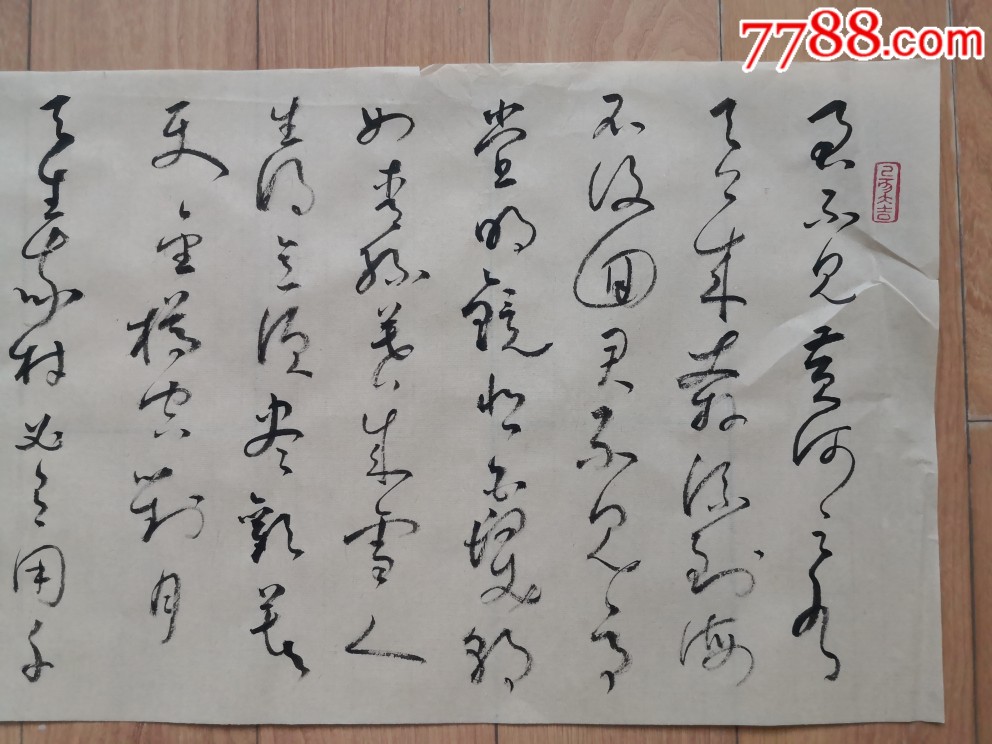 7788.com
君不見黄河之水
天上来奔流到海
不復回君不見高
堂明鏡悲白髮朝
如青絲暮成雪人
生得意須尽歡莫
使金樽空對月
天生我材必有用千